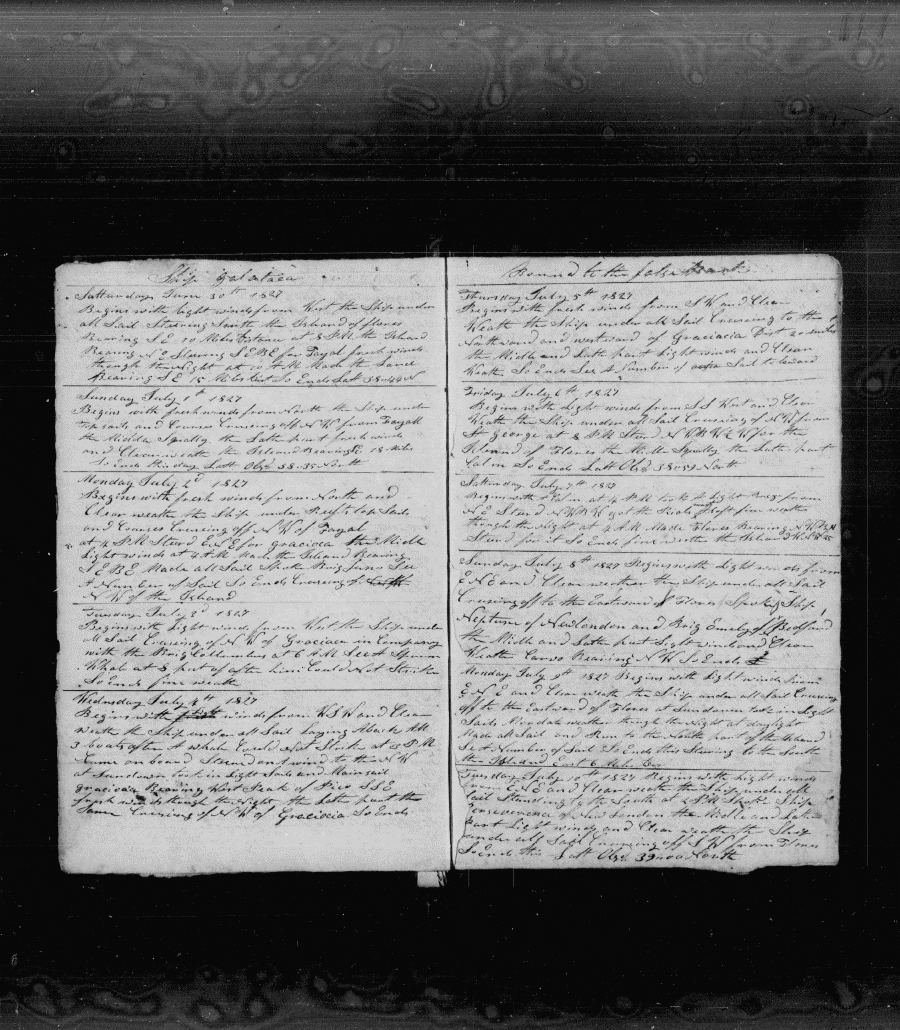 Ship Galataea
Satturday June 30th 1827
Begins with light winds from West the Ship under
all Sail Stearing South the Island of flores
Bearing S E 10 Miles Distance at 8 P.M. the Island
Bearing N Stearing S E B E for Fayal fresh winds
through the Night at 10 A M Made the Land
Bearing S E 15 Miles Dist So Ends Latt 38=44 N
Sunday July 1st 1827
Begins with fresh winds from North the Ship under
top sails and Courses Cruising off N W from Fayall
the Middle Squally the Latter part fresh winds
and Clear weath the Island Bearing E 15 Miles
So Ends this day Latt Obs 38=35 North
Monday July 2d 1827
Begins with fresh winds from North and
Clear weather the Ship under Reeft top Sails
and Courses Cruising off N W of Fayal
at 4 P M Steard E N E for graciocia the Midle
Light winds at 4 A M Made the Island Bearing
S E B E Made all Sail Spoke Brig Juno See
A Number of Sail So Ends Cruising to
N W of the Island
Tuesday July 3d 1827
Begins with Light winds from West the Ship under
all Sail Cruising of N W of Graciocia in Company
with the Brig Collumbus at 6 A M See A Sperm
Whal at 8 put of after him Could Not Strike
So Ends fine weath
Wednesday July 4th 1827
Begins with winds from W S W and Clear
weath the Ship under all Sail laying Aback All
3 boats after A whale Could Not Strike at 3 P M
Came on board Steard on A wind to the N W
at Sundown took in Light Sails and Mainsail
graciocia Bearing West Peak of Pico S S E
fresh winds through the Night the Latter part the
Same Cruising of N W of Graciocia So Ends
Bound to the false
Thursday July 5th 1827
Begins with fresh winds from S W and Clear
Weath the Ship under all Sail Cruising to the
Northward and westward of Graciocia Dist 20 miles
the Midle and Latt part light winds and Clear
Weath So Ends See A Number of Sail to leward
Friday July 6th 1827
Begins with Light winds from S S West and Clear
Weath the Ship under all Sail Cruising of N W from
St George at 8 P M Steard N W B W ½ W for the
Island of Flores the Midle Squally the Latt part
Calm So Ends Latt Obs 38=59 North
Satturday July 7th 1827
Begins with A Calm at 4 P M took A Light Breze from
N E Steard N W B W got the Boats Aloft fine weath
through the Night at 4 A M Made Flores Bearing N W B W
Steard for it So Ends fine weath the Island
Sunday July 8th 1827 Begins with Light winds from
E N E and Clear weather the Ship under all Sail
Cruising off to the Eastward of Flores Spoke Ship
Neptune of Newlondon and Brig Emely of Bedford
the Midle and Latt part Light winds and Clear
Weath Corvo Bearing N W So Ends
Monday July 9th 1827 Begins with Light winds from
E N E and Clear weath the Ship under all Sail Cruising
off to the Eastward of Flores at Sundown took in Light
Sails Moderate weather through the Night at daylight
Made all Sail and Run to the North part of the Island
See A Number of Sail So Ends this Stearing to the South
the Island East 6 Miles Dis
Tuesday July 10th 1827 Begins with Light winds
from E N E and Clear weath the Ship under all
Sail Standing to the South at 2 P M Spoke Ship
Perseverence of New london the Midle and Latter
part Light winds and Clear weath the Ship
under all Sail Cruising off S W from Flores
So Ends this Latt Obs 39=00 North